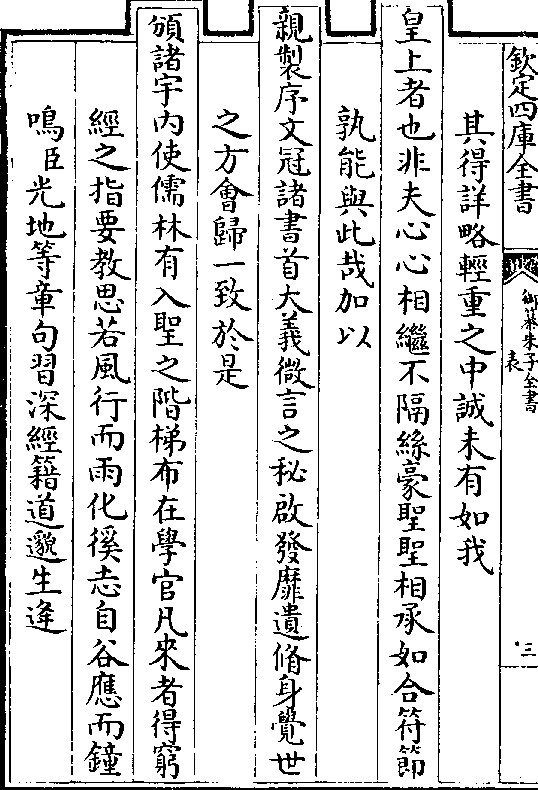 欽定四庫全書
御纂朱子全書
表
三
其得詳略輕重之中誠未有如我
皇上者也非夫心心相繼不隔絲豪聖聖相承如合符節
孰能與此哉加以
親製序文冠諸書首大義微言之秘啟發靡遺脩身覺世
之方會歸一致於是
頒諸宇內使儒林有入聖之階梯布在學官凡來者得窮
經之指要教思若風行而雨化徯志自谷應而鐘
鳴臣光地等章句習深經籍道邈生逢